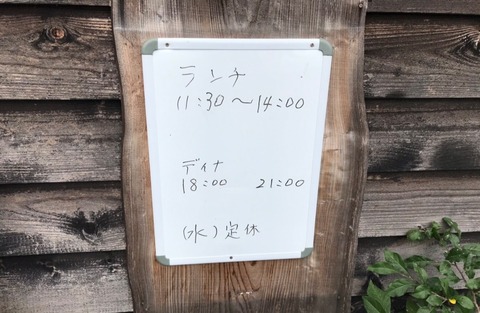 ランチ
11:30〜14:00
ディナ
18:00 21:00
(水)定休